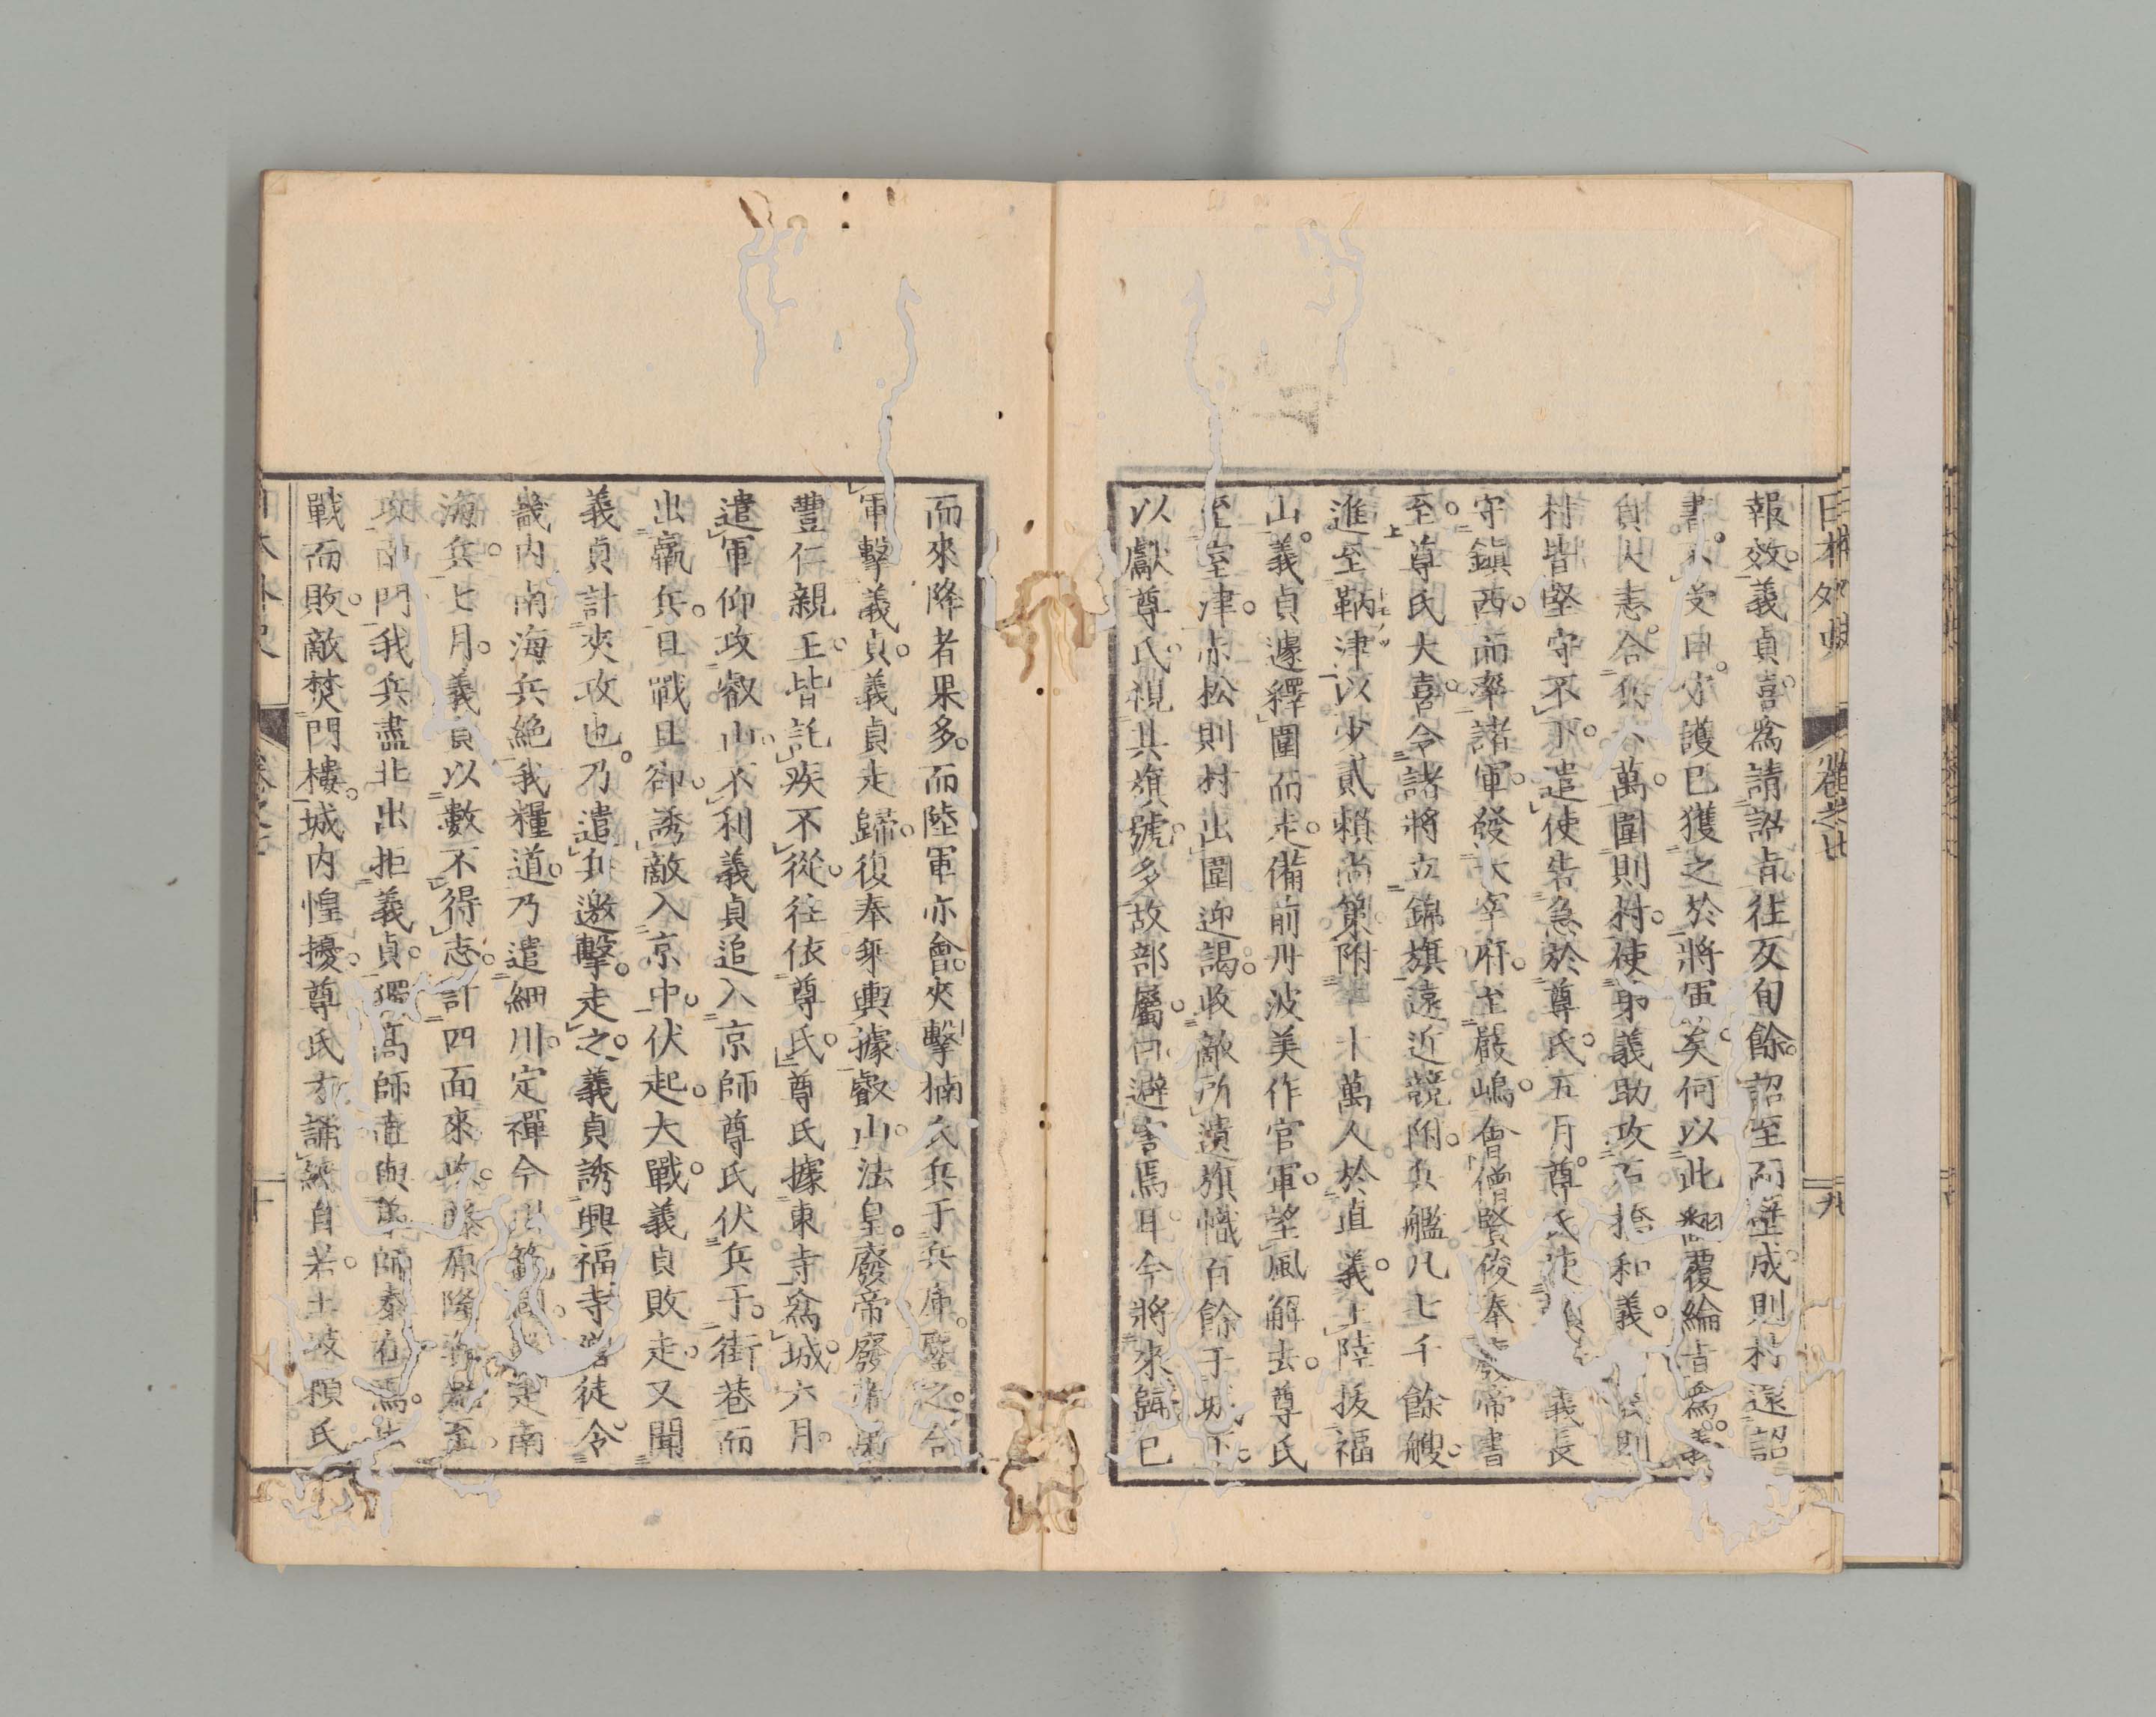 日本外史 卷之七 九
報效義貞喜爲請詔旨往反旬餘詔至而壁成則村還詔
書不受曰守護已獲之於將軍矣何以此翻覆綸旨爲義
貞大恚合兵六萬圍則村使弟義助攻石橋和義則
村皆堅守不下遣使告急於尊氏五月尊氏使義長
守鎭西而率諸軍發太宰府至嚴嶋會僧賢俊奉廢帝書
至尊氏大喜令諸將立錦旗遠近競附兵艦凡七千餘艘
進至鞆津以少貳賴尚策附二十萬人於直義上陸拔福
山義貞遽釋圍而走備前丹波美作官軍望風解去尊氏
至室津赤松則村出圍迎謁收敵所遺旗幟百餘于城下
以獻尊氏視其旗號多故部屬曰避害焉耳今將來歸已
而來降者果多而陸軍亦會夾擊楠氏兵于兵庫鏖之合
軍擊義貞義貞走歸復奉乘輿據叡山法皇廢帝廢帝弟
豐仁親王皆託疾不從往依尊氏尊氏據東寺爲城六月
遣軍仰攻叡山不利義貞追入京師尊氏伏兵于街巷而
出羸兵且戰且卻誘敵入京中伏起大戰義貞敗走又聞
義貞計夾攻也乃遣兵邀擊走之義貞誘興福寺僧徒令
畿内南海兵絕我糧道乃遣細川定禪今川範國定南
海兵七月義貞以數不得志計四面來攻藤原隆資至
攻南門我兵盡北出拒義貞獨高師直與弟師泰在焉出
戰而敗敵焚門樓城内惶擾尊氏方誦經自若土岐賴氏
日本外史 卷之七 十